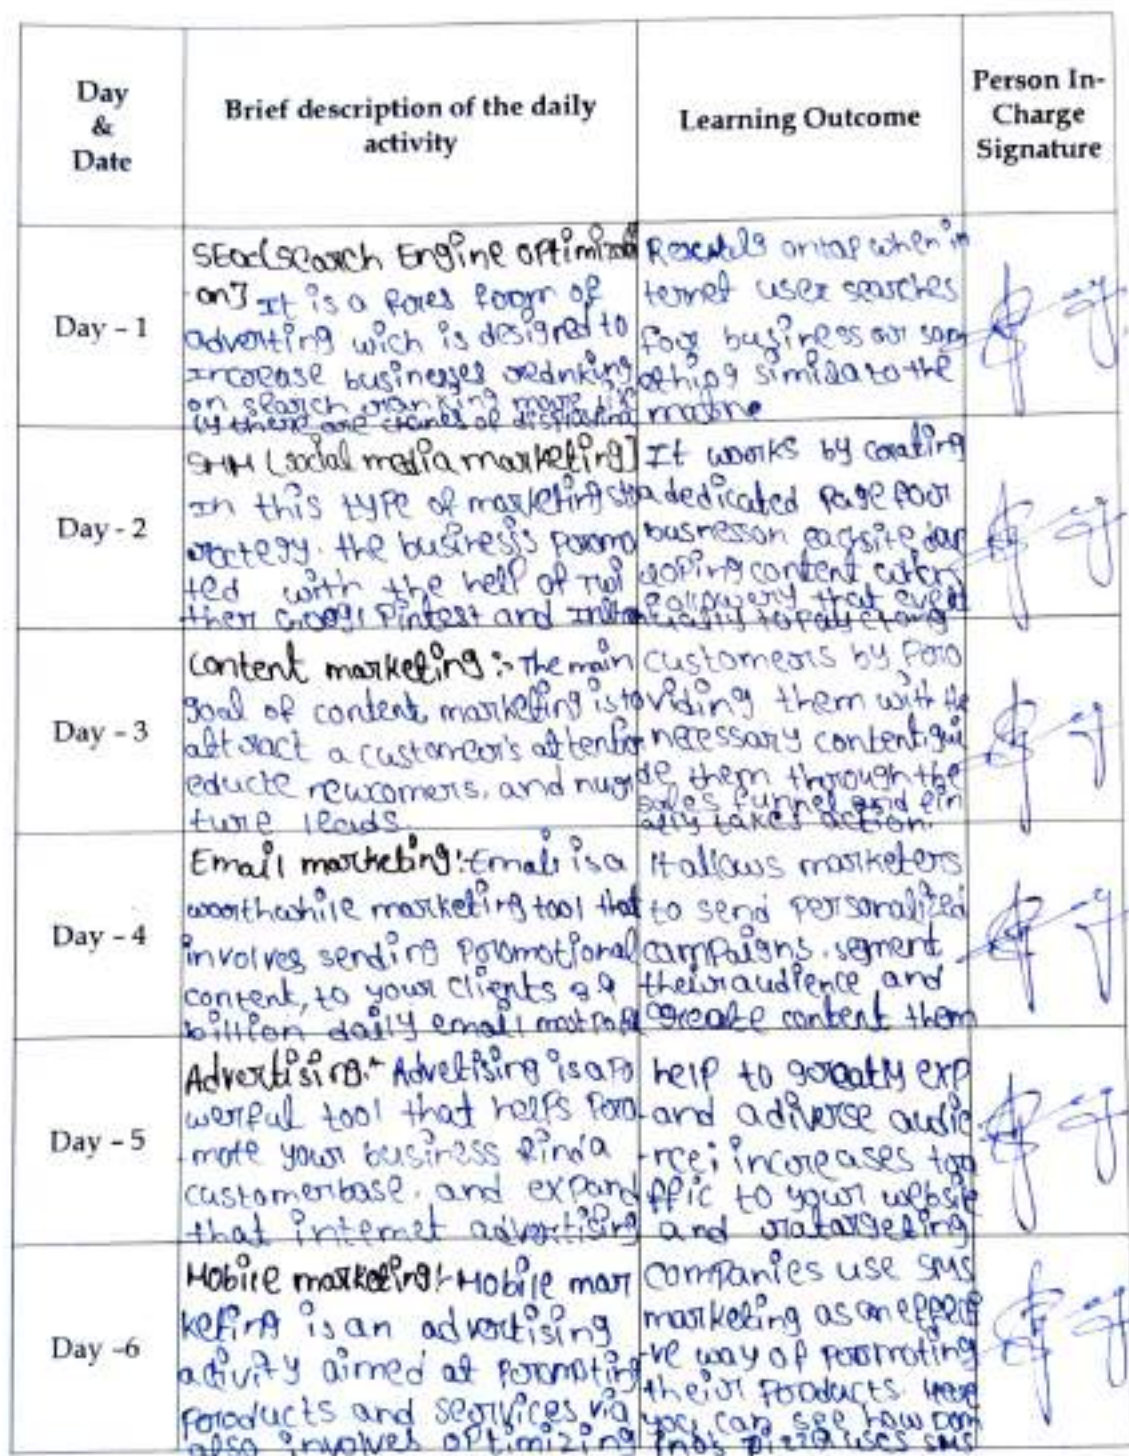 Day
&
Date
Brief description of the daily
activity
Learning Outcome
Person In-
Charge
Signature
Day – 1
SEO (Search Engine optimizati
on] It is a
adverting wich is designed to
increase businesses
on search ranking more
ly there are
when in
ternet user searches
for business or som
ething similar to the
Day - 2
SMM (social media marketing]
In this type of marketing st
rategy. the business promo
ted with the help of Twi
tther Googl Pintest and
It works by creating
a dedicated page for
each site
loping content
that even
Day – 3
Content marketing :- The main
goal of content marketing is to
attract a customer's attention
educte newcomers, and nur
ture leads.
customers by pro
viding them with the
necessary content, gui
de them through the
sales funnel and fin
ally takes action.
Day – 4
Email marketing :- Email is a
worthwhile marketing tool that
involves sending promotional
content, to your clients
billion daily email
It allows marketers
to send personalized
campaigns. segment
their audience and
create content them
Day – 5
Advertising :- Advetising is a po
werful tool that helps pro
mote your business find a
customerbase. and expand
that internet advertising
help to greatly exp
and a diverse audie
nce; increases tra
ffic to your website
and ratargeting
Day –6
Mobile marketing :- Mobile mar
keting is an advertising
activity aimed at promoting
products and services via
also involves optimizing
companies use SMS
marketing as an effecti
ve way of promoting
their products. Here
you can see how Dom
inos pizza uses SMS